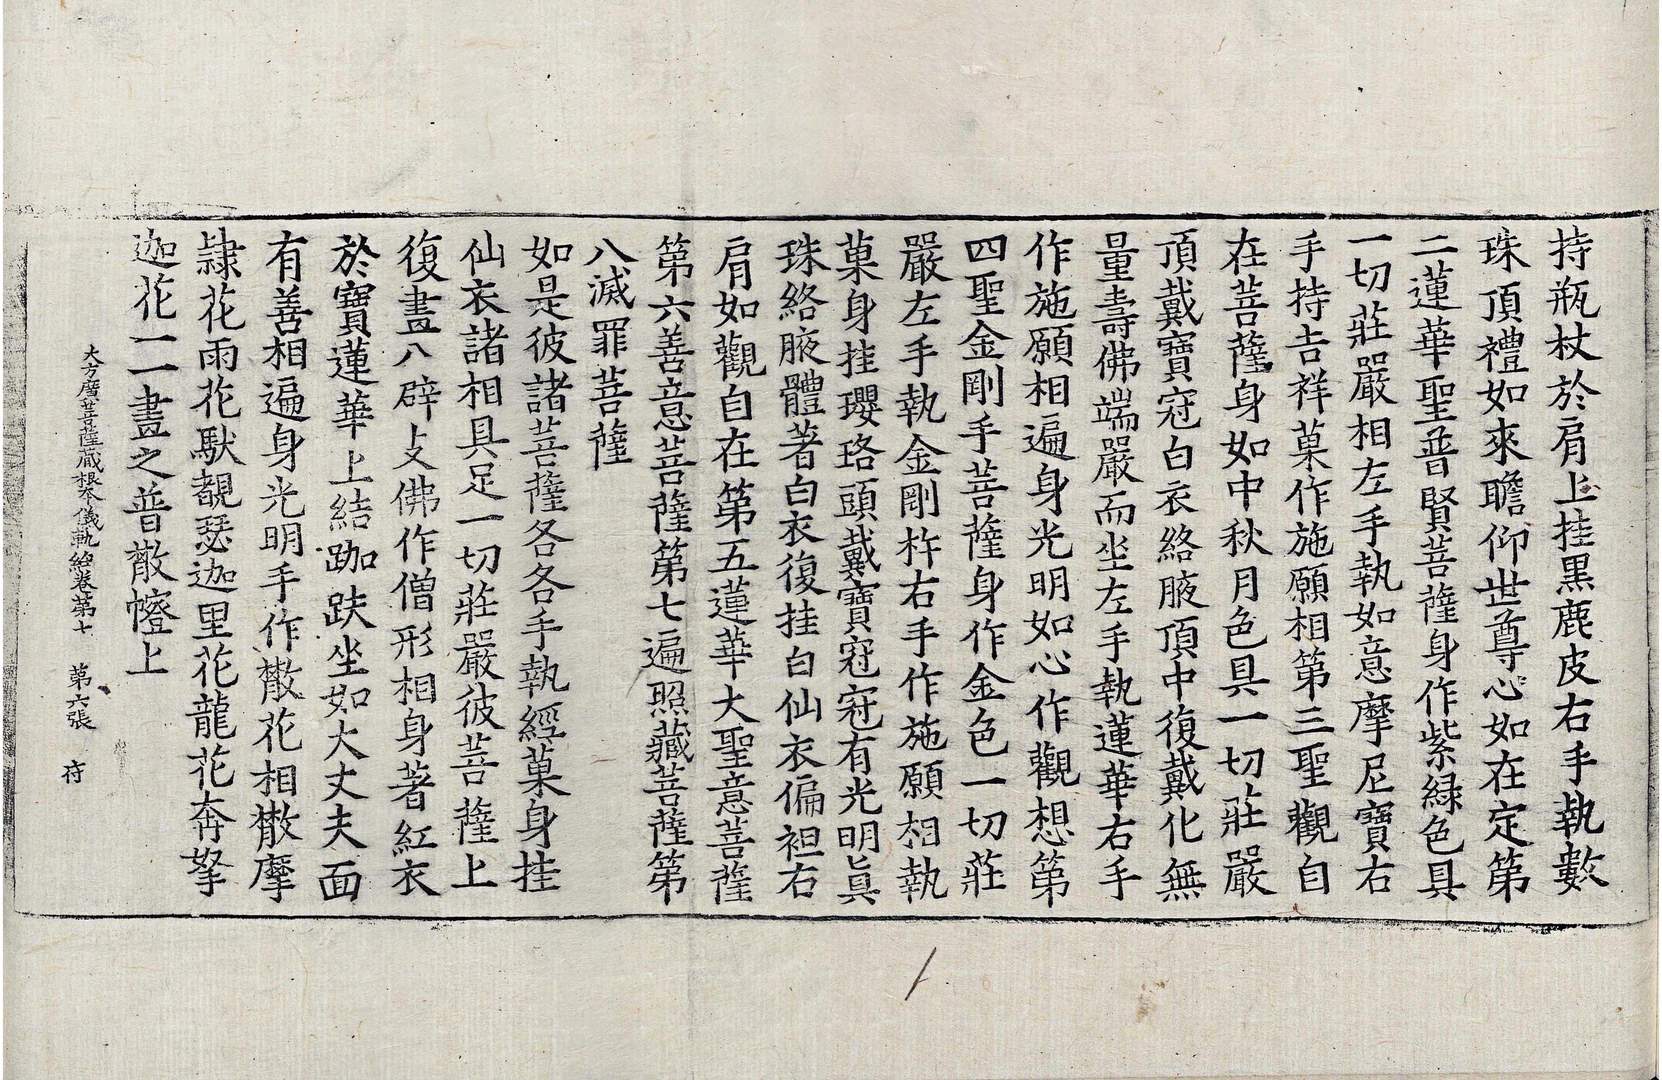 持瓶杖於肩上挂黑鹿皮右手執數
珠頂禮如來瞻仰世尊心如在定第
二蓮華聖普賢菩薩身作紫綠色具
一切莊嚴相左手執如意摩尼寶右
手持吉祥菓作施願相第三聖觀自
在菩薩身如中秋月色具一切莊嚴
頂戴寶冠白衣絡腋頂中復戴化無
量壽佛端嚴而坐左手執蓮華右手
作施願相遍身光明如心作觀想第
四聖金剛手菩薩身作金色一切莊
嚴左手執金剛杵右手作施願相執
菓身挂瓔珞頭戴寶冠冠有光明真
珠絡腋體著白衣復挂白仙衣偏袒右
肩如觀自在第五蓮華大聖意菩薩
第六善意菩薩第七遍照藏菩薩第
八滅罪菩薩
如是彼諸菩薩各各手執經菓身挂
仙衣諸相具足一切莊嚴彼菩薩上
復畫八辟支佛作僧形相身著紅衣
於寶蓮華上結跏趺坐如大丈夫面
有善相遍身光明手作㪚花相㪚摩
隸花雨花馱覩瑟迦里花龍花奔拏
迦花一一畫之普㪚㡧上
大方廣菩薩藏根本儀軌經卷第七 第六張 苻